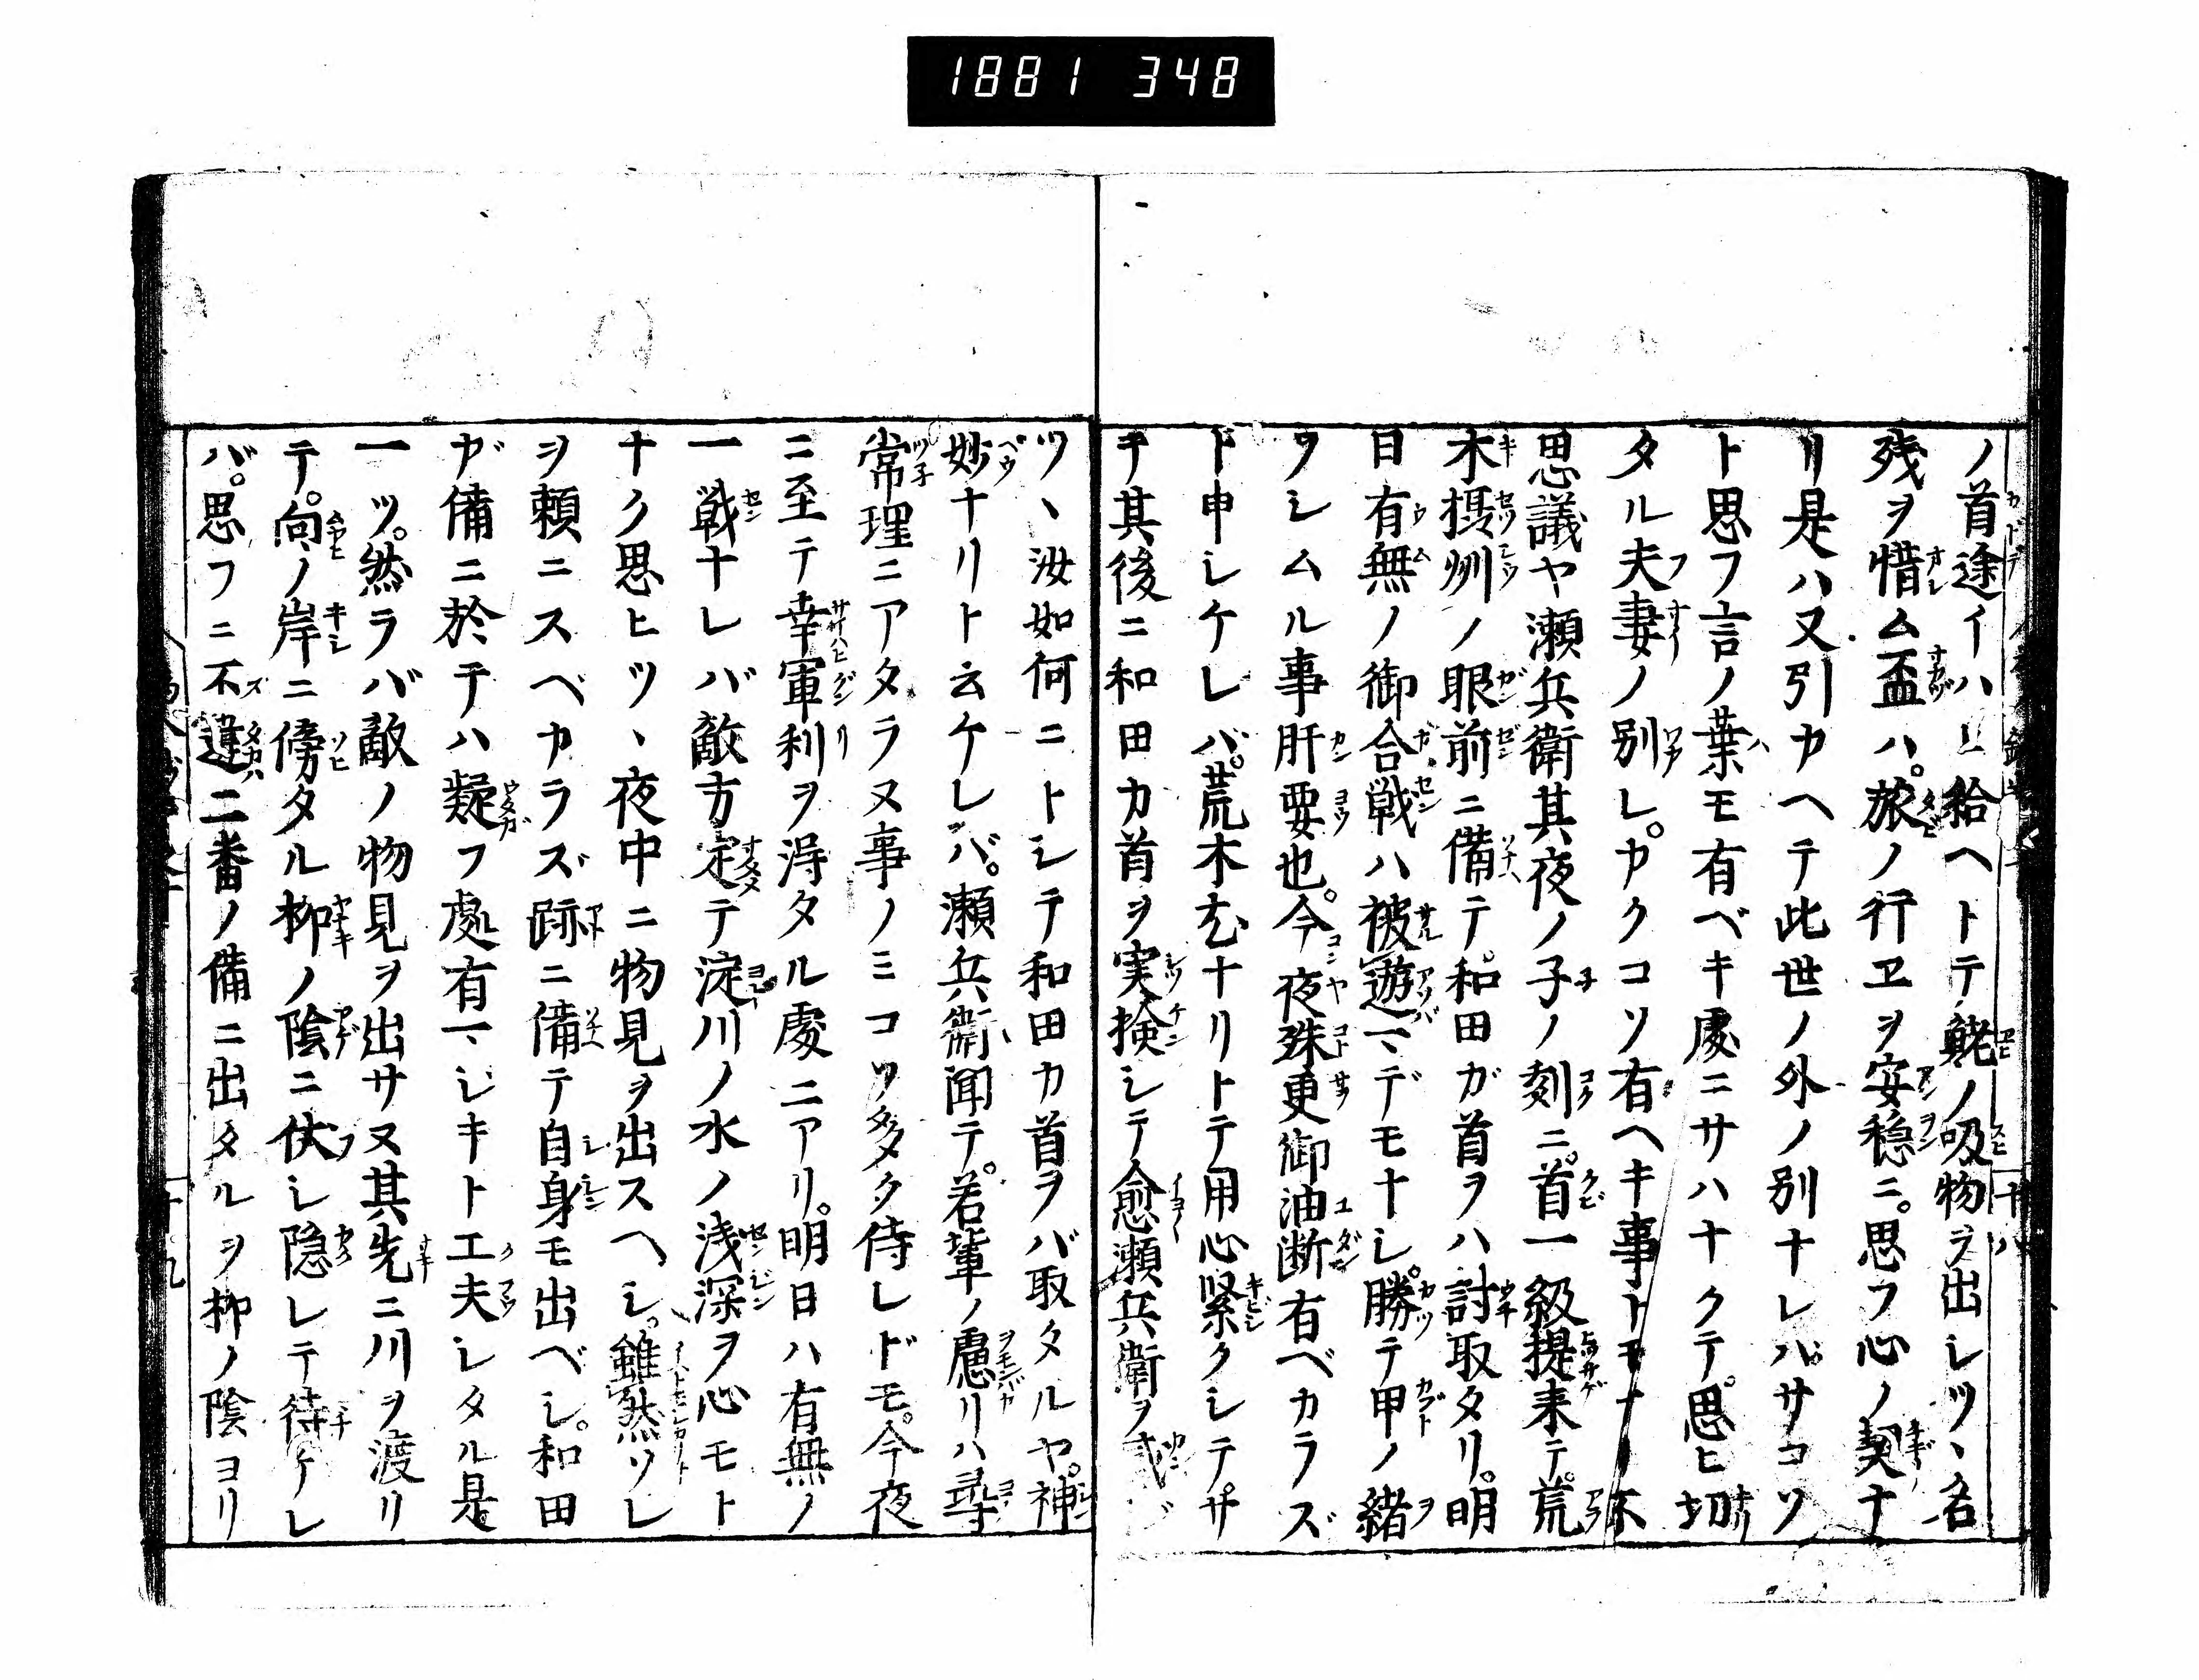 1881 348
ノ首途イハヒ給ヘトテ鯱ノ吸物ヲ出シツヽ名
残ヲ惜ム盃ハ。旅ノ行ヱヲ安穏ニ。思フ心ノ契ナ
リ是ハ又引カヘテ此世ノ外ノ別ナレバサコソ
ト思フ言ノ葉モ有ベキ處ニサハナクテ。思ヒ切
タル夫妻ノ別レ。カクコソ有ヘキ事トモナリ不
思議ヤ瀬兵衛其夜ノ子ノ刻ニ。首一級提来テ。荒
木摂州ノ眼前ニ備テ。和田ガ首ヲハ討取タリ。明
日有無ノ御合戦ハ被遊マデモナシ。勝テ甲ノ緒
ヲシムル事肝要也。今夜殊更御油断有ベカラズ
ト申シケレバ。荒木尤ナリトテ用心緊クシテ。サ
テ其後ニ和田カ首ヲ実検シテ愈瀬兵衛ヲ
ツヽ汝如何ニトシテ和田カ首ヲバ取タルヤ。神
妙ナリト云ケレバ。瀬兵衛聞テ。若輩ノ慮リハ尋
常理ニアタラヌ事ノミコソ多ク侍レドモ。今夜
ニ至テ幸軍利ヲ得タル處ニアリ。明日ハ有無ノ
一戦ナレバ敵方定テ淀川ノ水ノ浅深ヲ心モト
ナク思ヒツヽ夜中ニ物見ヲ出スヘシ。雖然ソレ
ヲ頼ニスベカラズ跡ニ備テ自身モ出ベシ。和田
ガ備ニ於テハ疑フ處有マジキト工夫シタル是
一ツ。然ラバ敵ノ物見ヲ出サヌ其先ニ川ヲ渡リ
テ。向ノ岸ニ傍タル柳ノ陰ニ伏シ隠レテ待ケレ
バ。思フニ不違二番ノ備ニ出タルヲ柳ノ陰ヨリ